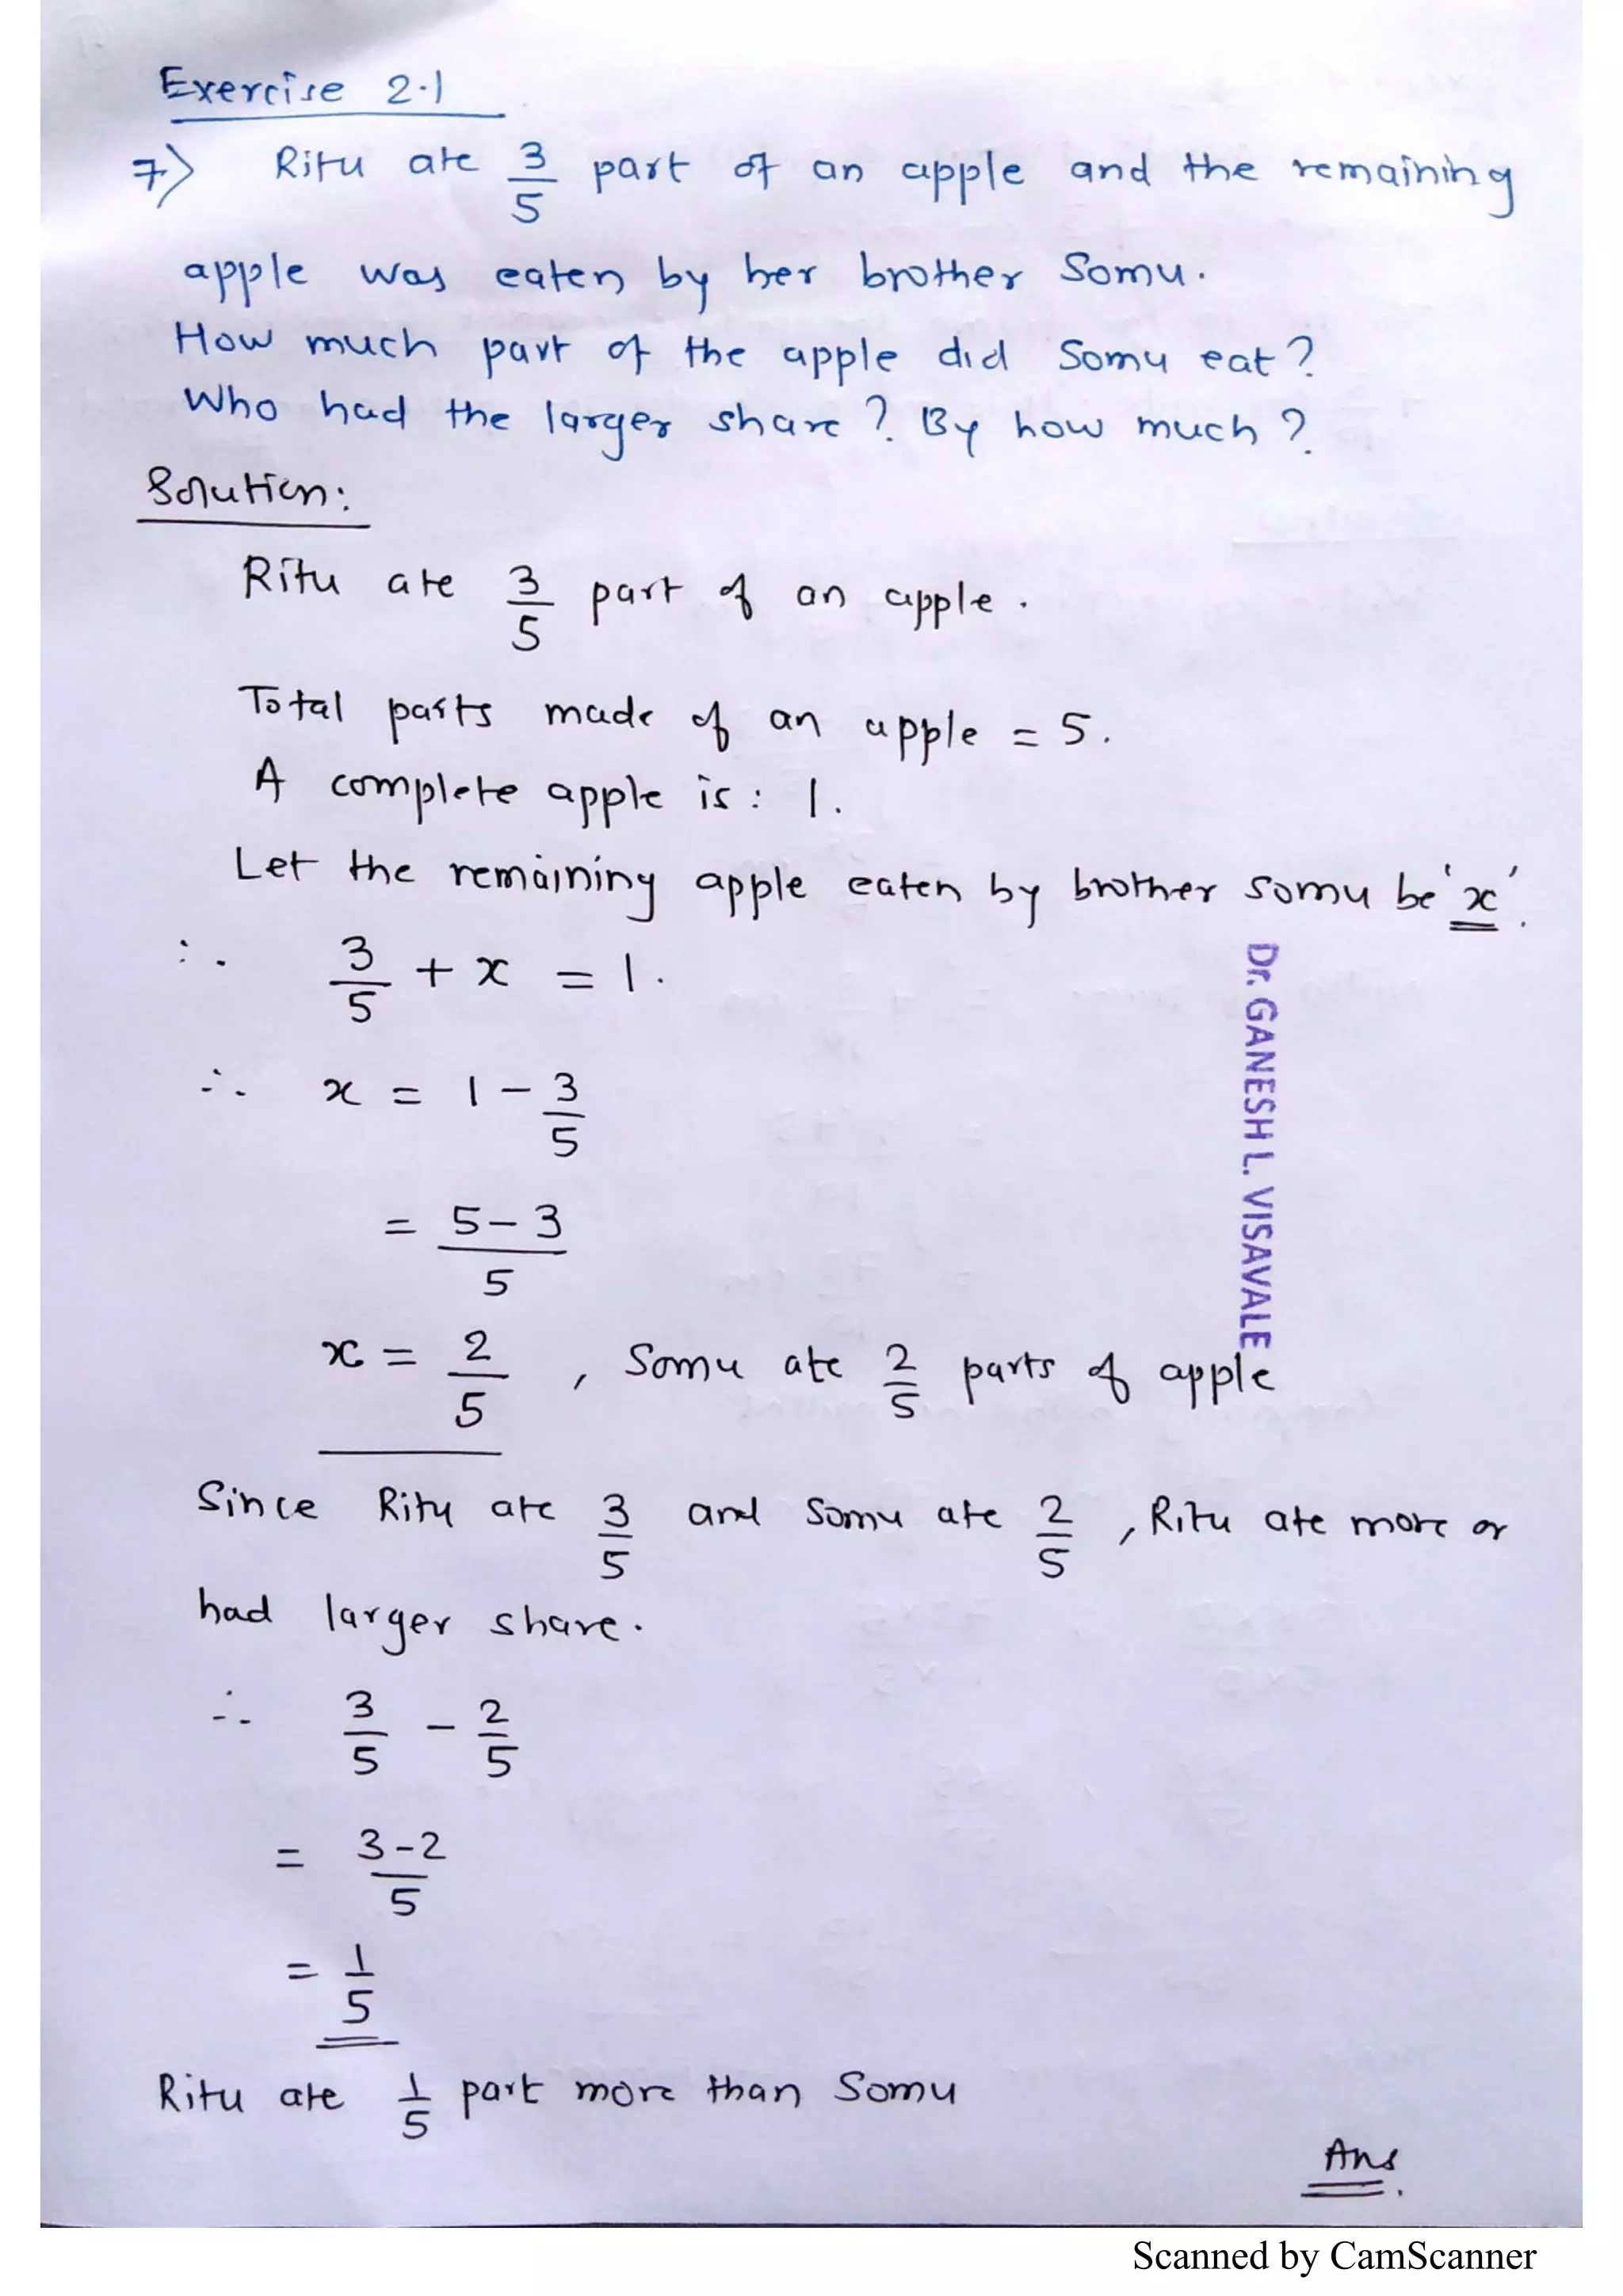 Exercise 2.1
7) Ritu ate 3/5 part of an apple and the remaining
apple was eaten by her brother Somu.
How much part of the apple did Somu eat?
Who had the larger share? By how much?
Solution:
Ritu ate 3/5 part of an apple.
Total parts made of an apple = 5.
A complete apple is: 1.
Let the remaining apple eaten by brother Somu be 'x'.
∴ 3/5 + x = 1.
∴ x = 1 - 3/5
= 5-3/5
x = 2/5, Somu ate 2/5 parts of apple
Dr. GANESH L. VISAVALE
Since Ritu ate 3/5 and Somu ate 2/5, Ritu ate more or
had larger share.
∴ 3/5 - 2/5
= 3-2/5
= 1/5
Ritu ate 1/5 part more than Somu
Ans.
Scanned by CamScanner